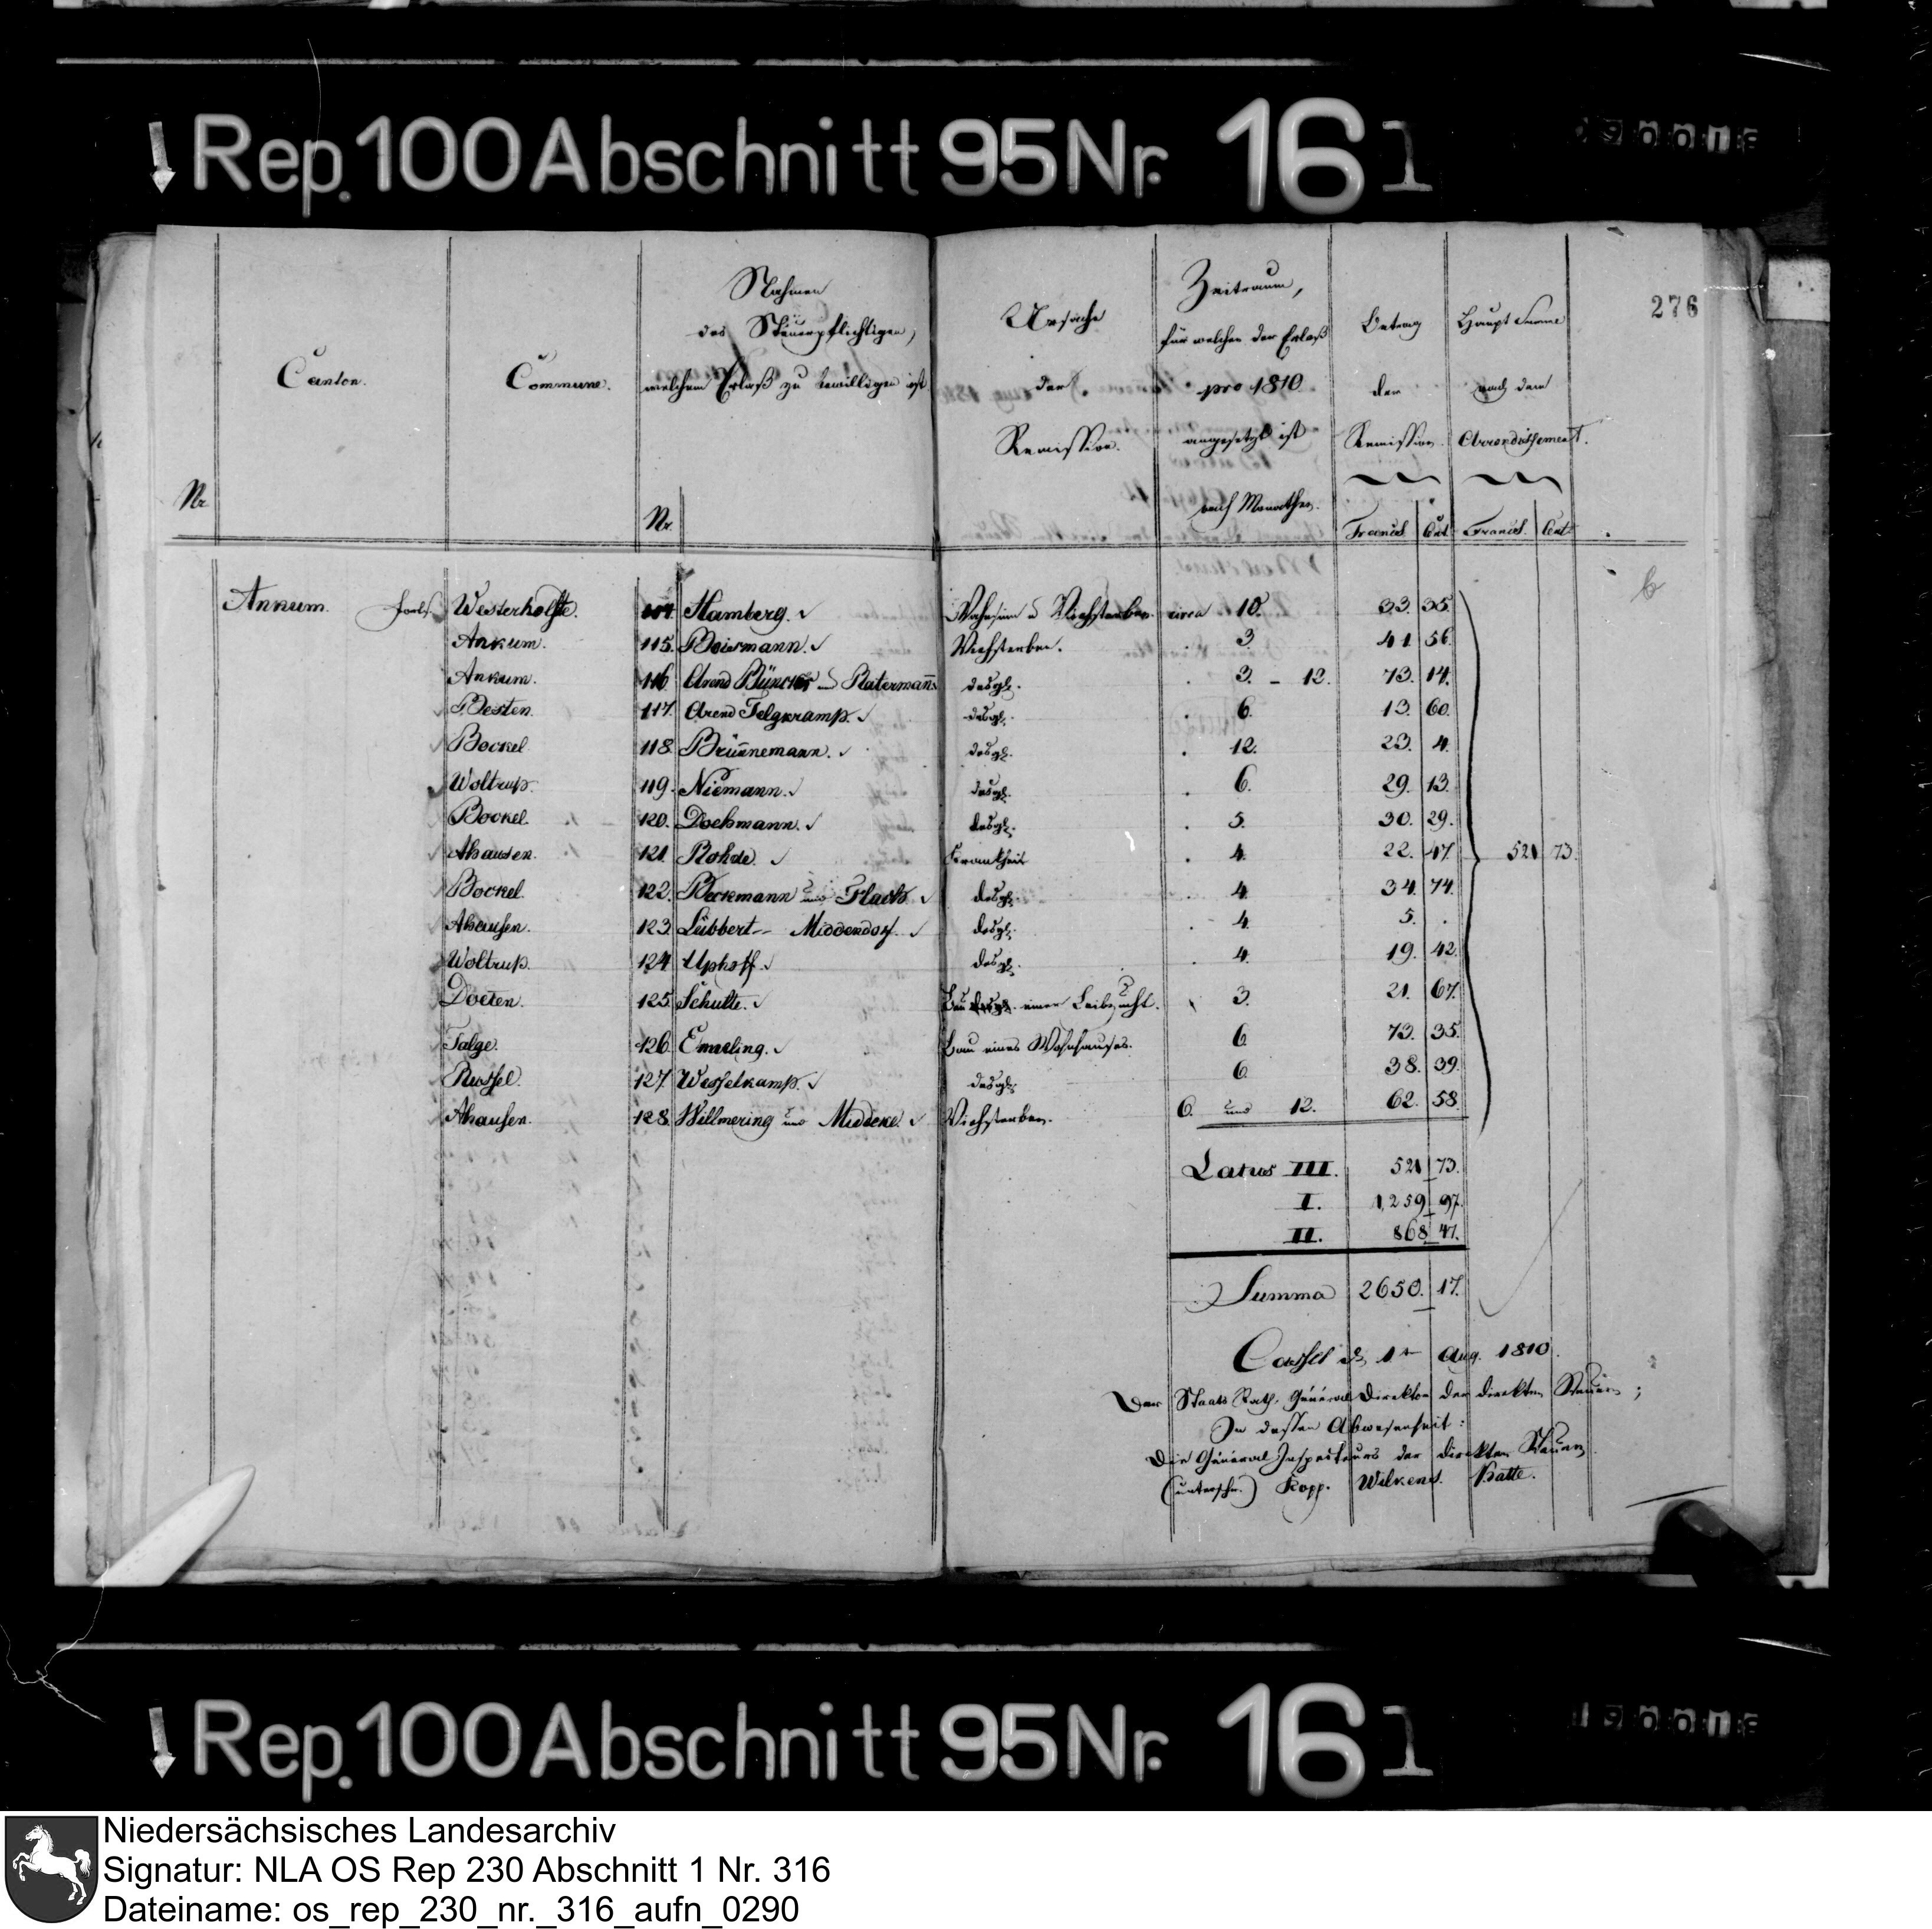 Rep. 100 Abschnitt 95 Nr. 16 1
276
Nr.
Canton.
Commune.
Nr.
Nahmen
des Steuerpflichtigen,
welchem Erlaß zu bewilligen ist
Ursache
der
Remission.
Zeitraum,
für welchen der Erlaß
pro 1810
angesetzt ist
nach Monathen.
Betrag
der
Remission.
Francs. Cent
Haupt Summe
nach dem
Arrondissement.
Francs. Cent
Ankum. Westerholte. 114. Hamberg. Viehsterben circa 10. 33. 35.
Ankum. 115. Boiermann. Viehsterben. 3. 41 56.
Ankum. 116. Arend und Ratermann desgl. 3. - 12. 73. 14.
Besten. 117. Arend Telgkamp. desgl. 6. 13. 60.
Bockel 118. Brünnemann. desgl. 12. 23. 4.
Woltrup. 119. Niemann. desgl. 6. 29. 13.
Bockel. 120. Dockmann. desgl. 5. 30. 29.
Ahausen. 121. Rohde. Krankheit 4. 22. 47. 521 73.
Bockel. 122. Beckmann und desgl. 4. 34. 74.
Ahausen. 123. Lübbert- Middendorf. desgl. 4. 5. .
Woltrup. 124. Uphoff. desgl. 4. 19. 42.
Doeten. 125. Schulte. Bau einer Leibzucht. 3. 21. 67.
Talge. 126. Emeling. Bau eines Wohnhauses. 6 73. 35.
Russel. 127. Wesselkamp. desgl. 6. 38. 39.
Ahausen. 128. Willmering und Middeke Viehsterben. 6. und 12. 62. 58.
Latus III. 521 73.
I. 1,259 97.
II. 868 47.
Summa 2650. 17.
Cassel d. 1t Aug. 1810.
Der Staats Rath, Général Direktor der direkten Steuern;
In dessen Abwesenheit:
Die Général Inspecteurs der direkten Steuern
(unterschr.) Kopp. Wilkens. Batte.
Rep. 100 Abschnitt 95 Nr. 16 1
Niedersächsisches Landesarchiv
Signatur: NLA OS Rep 230 Abschnitt 1 Nr. 316
Dateiname: os_rep_230_nr._316_aufn_0290